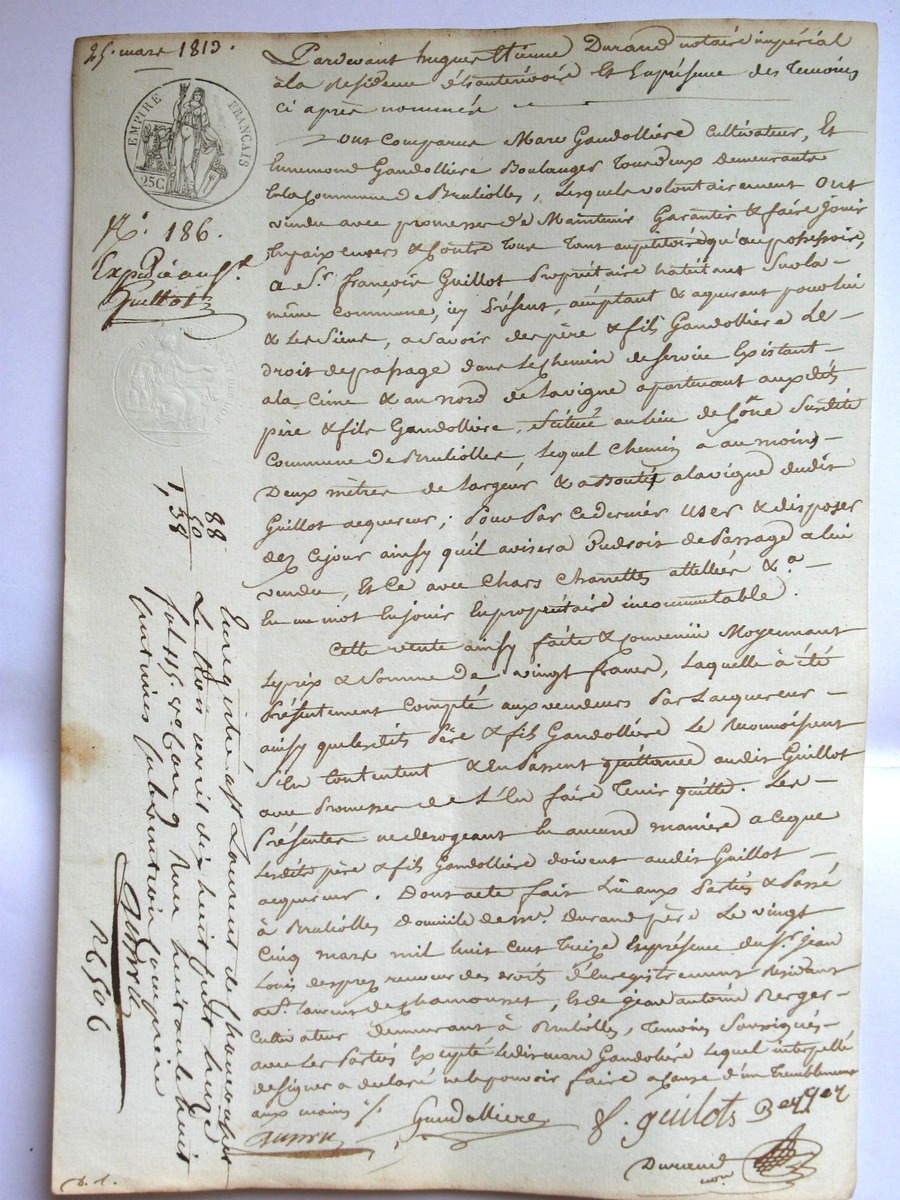 25. mars 1813.
EMPIRE FRANÇAIS
25C
N.° 186.
Expédié au Sr.
Guillot
Pardevant hugues Etienne Durand notaire impérial
à la Residence et En présence des Temoins
ci après nommés
Ont Comparus Marc Gandollière Cultivateur, Et
Ennemond Gandollière Boulanger Tous deux demeurants
En la Commune de Brulioles, Lesquels volontairement Ont
vendu avec promesses de Maintenir Garantir & faire Jouir
En paix envers & Contre Tous Tant au pétitoire qu'au possessoire,
a Sr. françois Guillot Propriétaire habitant Susd
même Commune, icy Présent, acceptant & aquerant pour lui
& Les Siens, a Savoir des père & fils Gandollière Le
droit de passage dans Le Chemin de Service Existant
a la Cime & au Nord de La vigne apartenant aux dits
père & fils Gandollière, Située au lieu de Susdite
Commune de Brulioles, Lequel Chemin a au moins
Deux mètres de Largeur & aboutit a la vigne dudit
Guillot acquereur; Pour Par Ce dernier User & disposer
dez Cejour ainsy qu'il avisera Du droit de Passage a lui
vendu, Et Ce avec Chars Charrettes attellées &.a
En un mot En jouir En propriétaire incommutable.
Cette vente ainsy faite & Convenue Moyennant
Le prix & Somme De vingt francs, Laquelle à été
Présentement Compté aux vendeurs Par Lacquereur
ainsy que Lesdits Père & fils Gandollière Le Reconnoissent
S'En Contentent & En Passent quittance audit Guillot
avec Promesses de L'En faire Tenir quitte. Les
Présentes ne derogeant En aucune manière a Ceque
Lesdits père & fils Gandollière doivent audit Guillot
acquereur. Dont acte fait Lu aux Parties & Passé
à Brulioles Domicile de Mr. Durand père Le vingt
Cinq mars mil huit Cent Treize En présence du Sr. Jean
Louis Desprez receveur des droits d'Enregistrement Résidant
a St. Laurent de Chamousset, Et de Jean antoine Berger
Cultivateur demeurant à Brulioles, Temoins Soussignés
avec Les Parties Excepté Ledit marc Gandolière Lequel interpellé
de signer a déclaré ne le pouvoir faire a Cause d'un Tremblement
aux mains
Gandolliere
f. guilots
Berger
Durand
not.
Enregistré à St Laurent de Chamousset
Le trois avril dix huit cent treize
Reçu huit
88
50
1,38
R 506